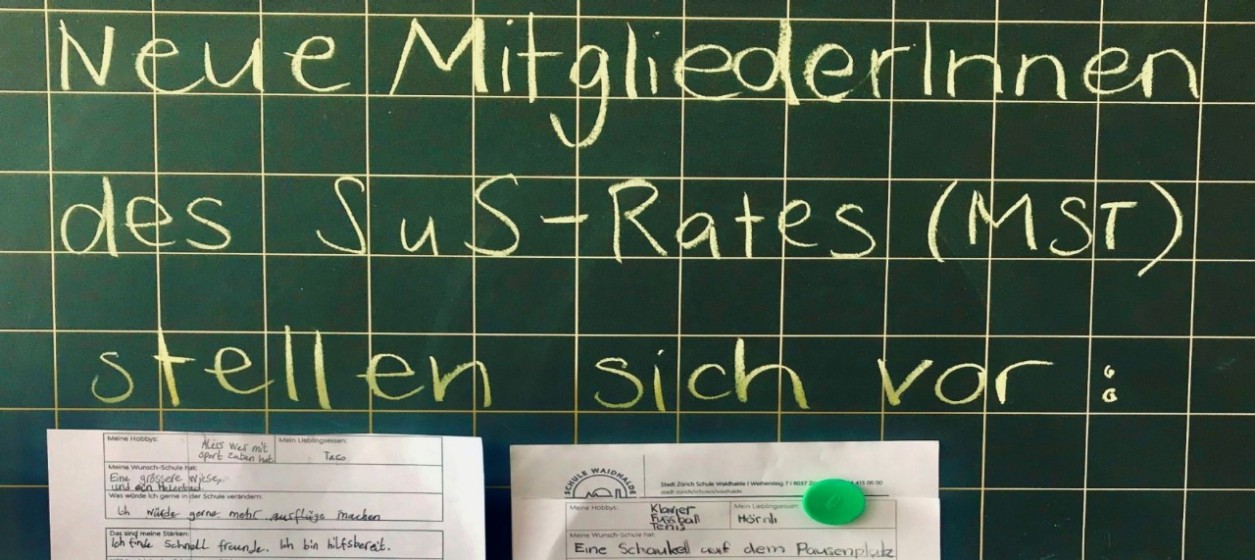 Neue MitgliederInnen
des SuS-Rates (MST)
stellen sich vor :
Meine Hobbys:
Alles was mit
sport zu tun hat
Mein Lieblingsessen:
Taco
Meine Wunsch-Schule hat:
Eine grössere Wiese,
und ein
Was würde ich gerne in der Schule verändern:
Ich würde gerne mehr ausflüge machen
Das sind meine Stärken:
Ich finde Schnell freunde. Ich bin hilfsbereit.
SCHULE WAIDHALDE
Stadt Zürich Schule Waidhalde
Meine Hobbys:
Klavier
Fussball
Tenis
Mein Lieblingsessen:
Hörnli
Meine Wunsch-Schule hat:
Eine Schaukel auf dem Pausenplatz